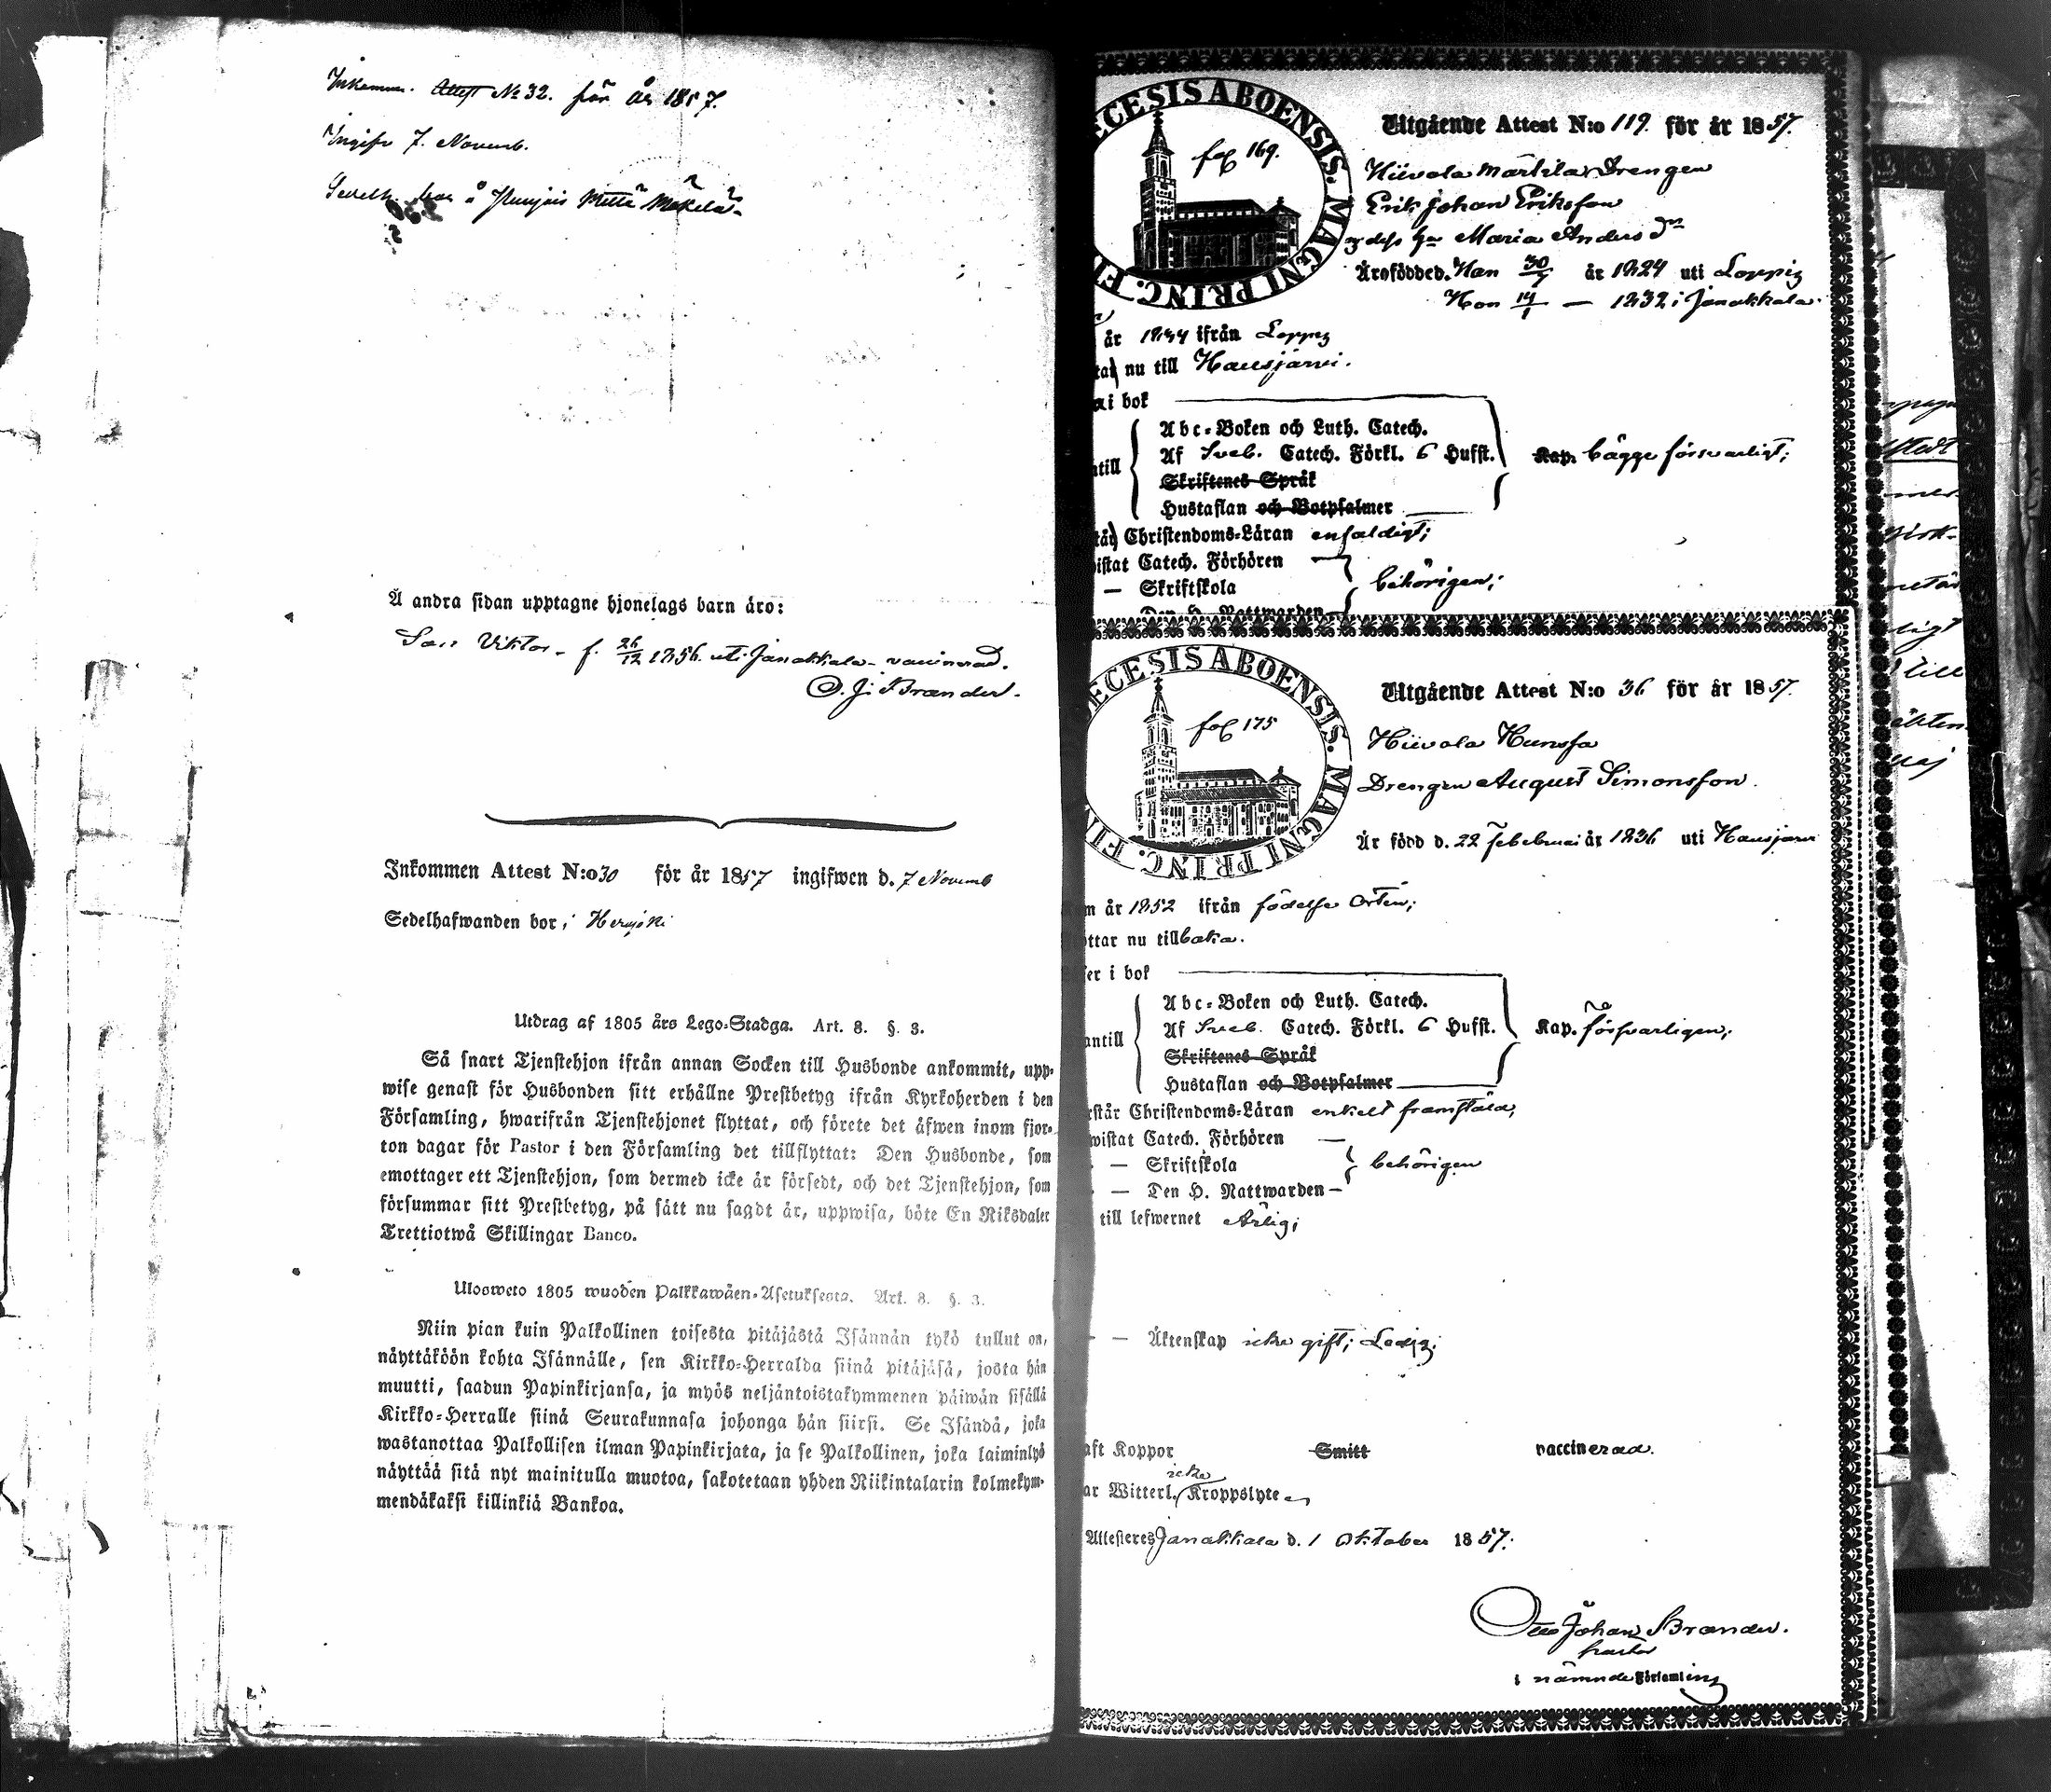 Inkommen. Attest No 32. för år 1857.
Ingifv 7. Novemb.
Sedelh. bor å Mäkelä
Å andra sidan upptagne hjonelags barn äro:
Son Viktor - f. 26/12 1856. uti Janakkala - vaccinerad.
O. J. Brander.
Inkommen Attest N:o 30 för år 1857 ingifwen d. 7 Novemb
Sedelhafwanden bor i
Utdrag af 1805 års Lego-Stadga. Art. 8. §. 3.
Så snart Tjenstehjon ifrån annan Socken till Husbonde ankommit, upp-
wise genast för Husbonden sitt erhållne Prestbetyg ifrån Kyrkoherden i den
Församling, hwarifrån Tjenstehjonet flyttat, och förete det äfwen inom fjor-
ton dagar för Pastor i den Församling det tillflyttat: Den Husbonde, som
emottager ett Tjenstehjon, som dermed icke är försedt, och det Tjenstehjon, som
försummar sitt Prestbetyg, på sätt nu sagdt är, uppwisa, böte En Riksdaler
Trettiotwå Skillingar Banco.
Ulosweto 1805 wuoden Palkkawäen-Asetuksesta. Art. 8. §. 3.
Niin pian kuin Palkollinen toisesta pitäjästä Isännän tykö tullut on,
näyttäköön kohta Isännälle, sen Kirkko-Herralda siinä pitäjäsä, josta hän
muutti, saadun Papinkirjansa, ja myös neljäntoistakymmenen päiwän sisällä
Kirkko-Herralle siinä Seurakunnasa johonga hän siirsi. Se Isändä, joka
wastanottaa Palkollisen ilman Papinkirjata, ja se Palkollinen, joka laiminlyö
näyttää sitä nyt mainitulla muotoa, sakotetaan yhden Riikintalarin kolmekym-
mendäkaksi killinkiä Bankoa.
ECESIS ABOENSIS. MAGNI PRINC. FI
fol 169.
Utgående Attest N:o 119. för år 1857.
Hiivola Märkila Drengen
Erik Johan Eriksson
dess Hu Maria Andersdr
Äro födde d. Han 30/9 år 1824 uti Loppis
Hon 14/1 — 1832 i Janakkala.
år ifrån Loppis
tar nu till Hausjärvi.
i bok
ntill
Abc-Boken och Luth. Catech.
Af Sveb. Catech. Förkl. 6 Hufst.
Skriftenes Språk
Hustaflan och Botpsalmer
Kap. bägge försvarligt;
står Christendoms-Läran enfaldigt;
wistat Catech. Förhören
— Skriftskola
— Den H. Nattwarden
behörigen;
ECESIS ABOENSIS. MAGNI PRINC. FIN
fol 175
Utgående Attest N:o 36 för år 1857.
Hiivola Hunsa
Drengen August Simonsson.
Är född d. 22 Februari år 1836 uti Hausjärvi
m år 1852 ifrån födelse orten;
yttar nu tillbaka.
ser i bok
antill
Abc-Boken och Luth. Catech.
Af Sveb. Catech. Förkl. 6 Hufst.
Skriftenes Språk
Hustaflan och Botpsalmer
Kap. försvarligen;
rstår Christendoms-Läran enkelt framstäld;
wistat Catech. Förhören —
— Skriftskola
— Den H. Nattwarden —
behörigen
till lefwernet Ärlig;
— — Äktenskap icke gift; Ledig.
aft Koppor Smitt vaccinerad.
ar Witterl. icke Kroppslyte
Attesteres Janakkala d. 1 Oktober 1857.
Otto Johan Brander.
pastor
i nämnde Församling